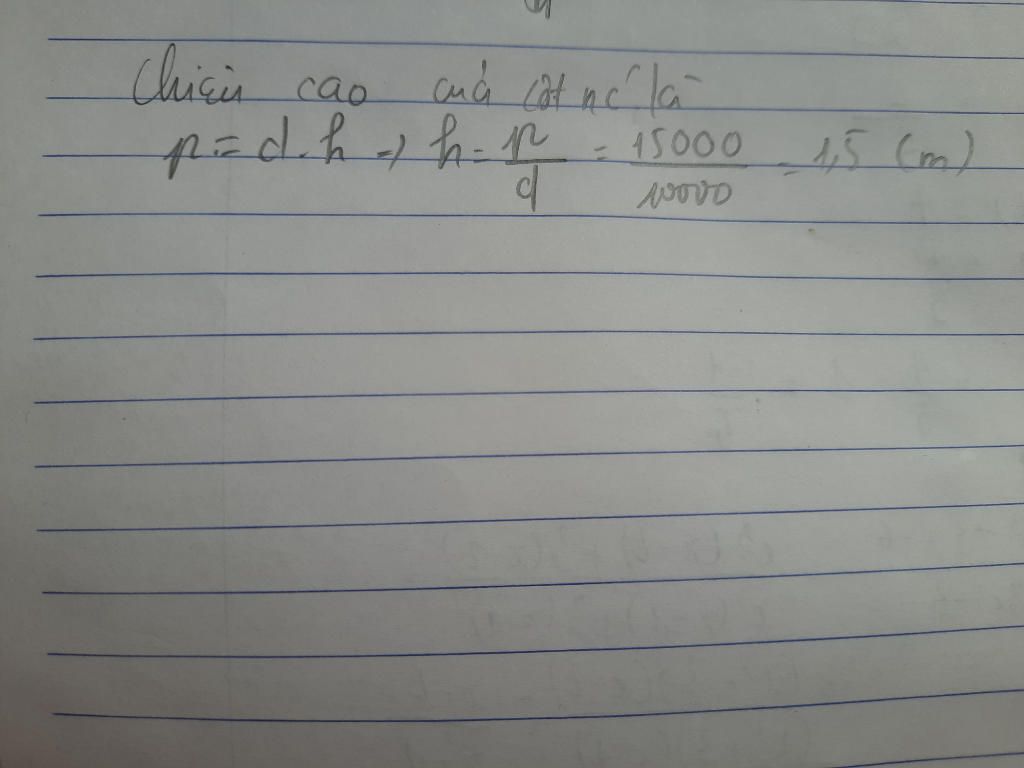 Chiều cao của cột nc' là
p = d.h => h = p/d = 15000/10000 = 1,5 (m)